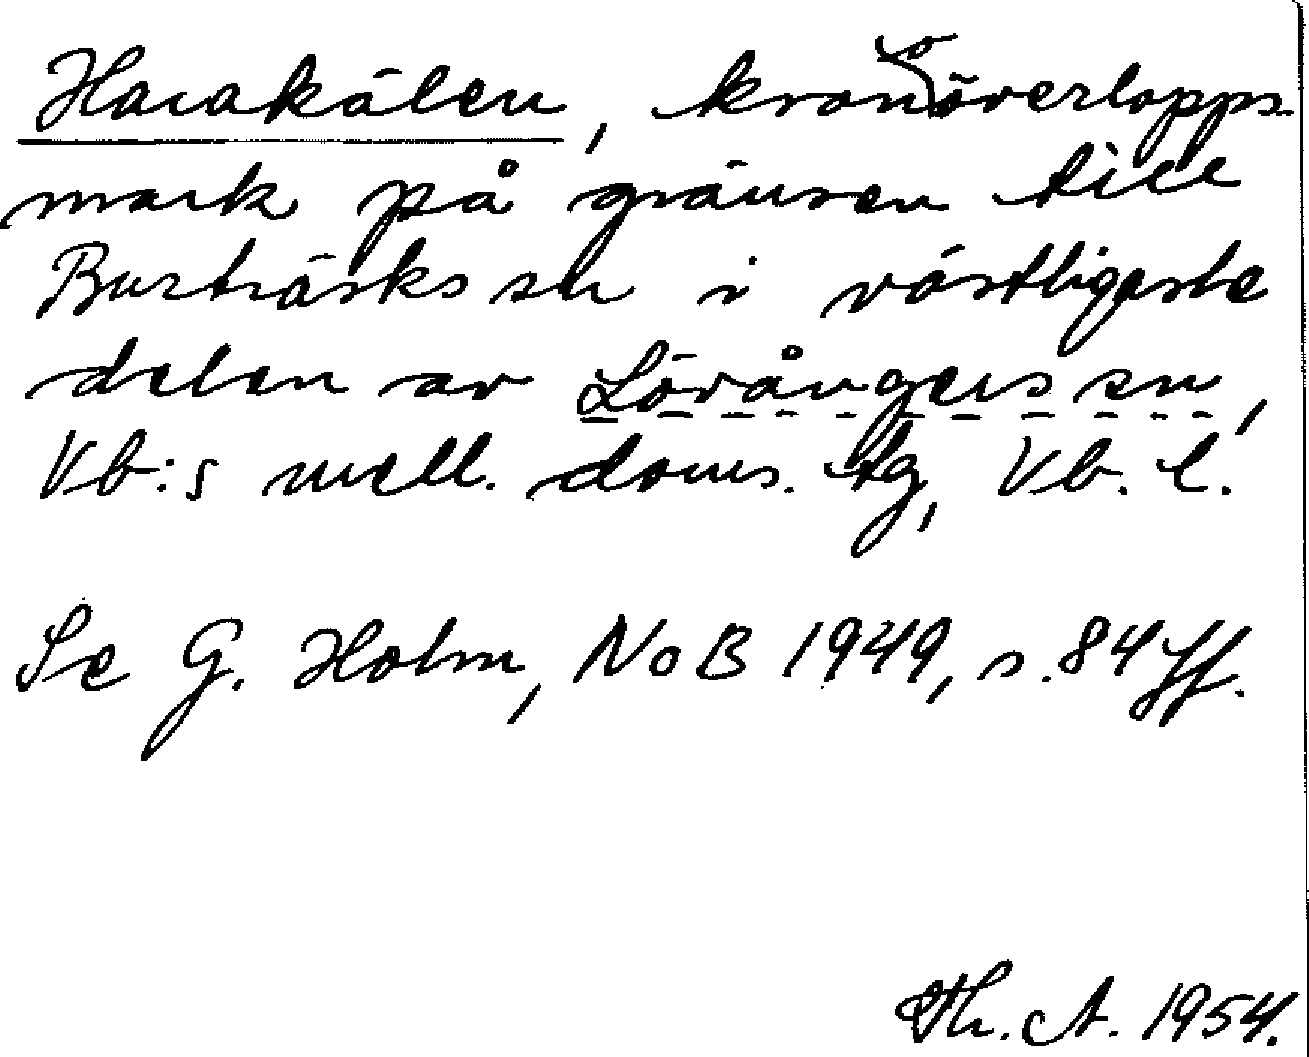 Harakälen, kronoöverlopps-
mark på gränsen till
Burträsks sn i västligaste
delen av Lövångers sn,
Vb:s mell. doms. tg, Vb. l.
Se G. Holm, NoB 1949, s. 84 ff.
Th. A. 1954.